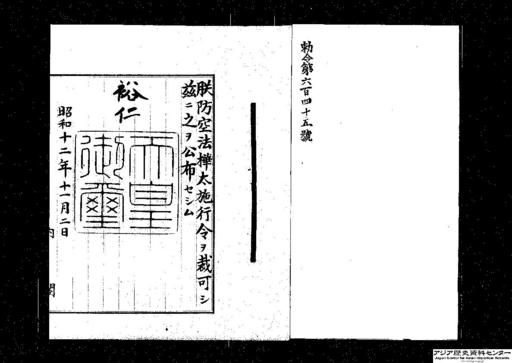 勅令第六百四十五號
朕防空法樺太施行令ヲ裁可シ
玆ニ之ヲ公布セシム
裕仁
天皇御璽
昭和十二年十一月二日
内閣
アジア歴史資料センター
Japan Center for Asian Historical Records